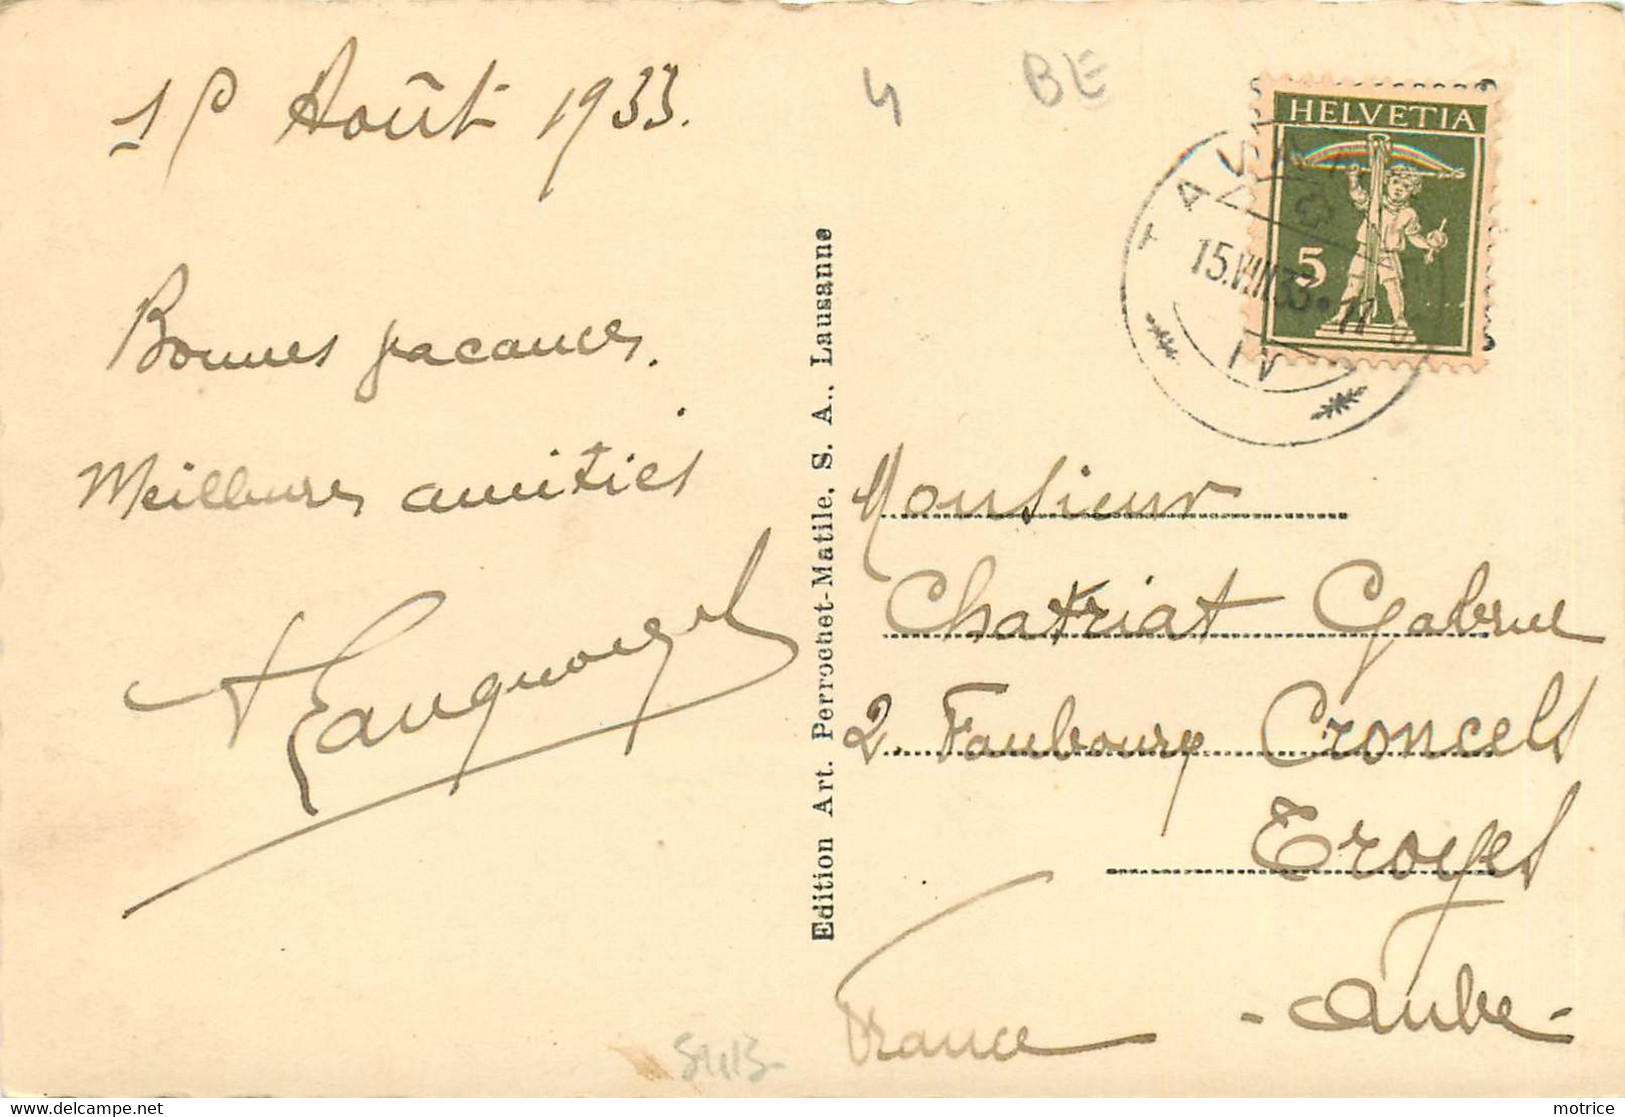 15 Août 1933.
Bonnes vacances.
Meilleures amitiés
Edition Art. Perrochet-Matile, S. A., Lausanne
4
BE
HELVETIA
5
15.VIII.33•11
IV
Monsieur
Chatriat Gabriel
2. Faubourg Croncels
Troyes
- Aube -
France
www.delcampe.net
motrice